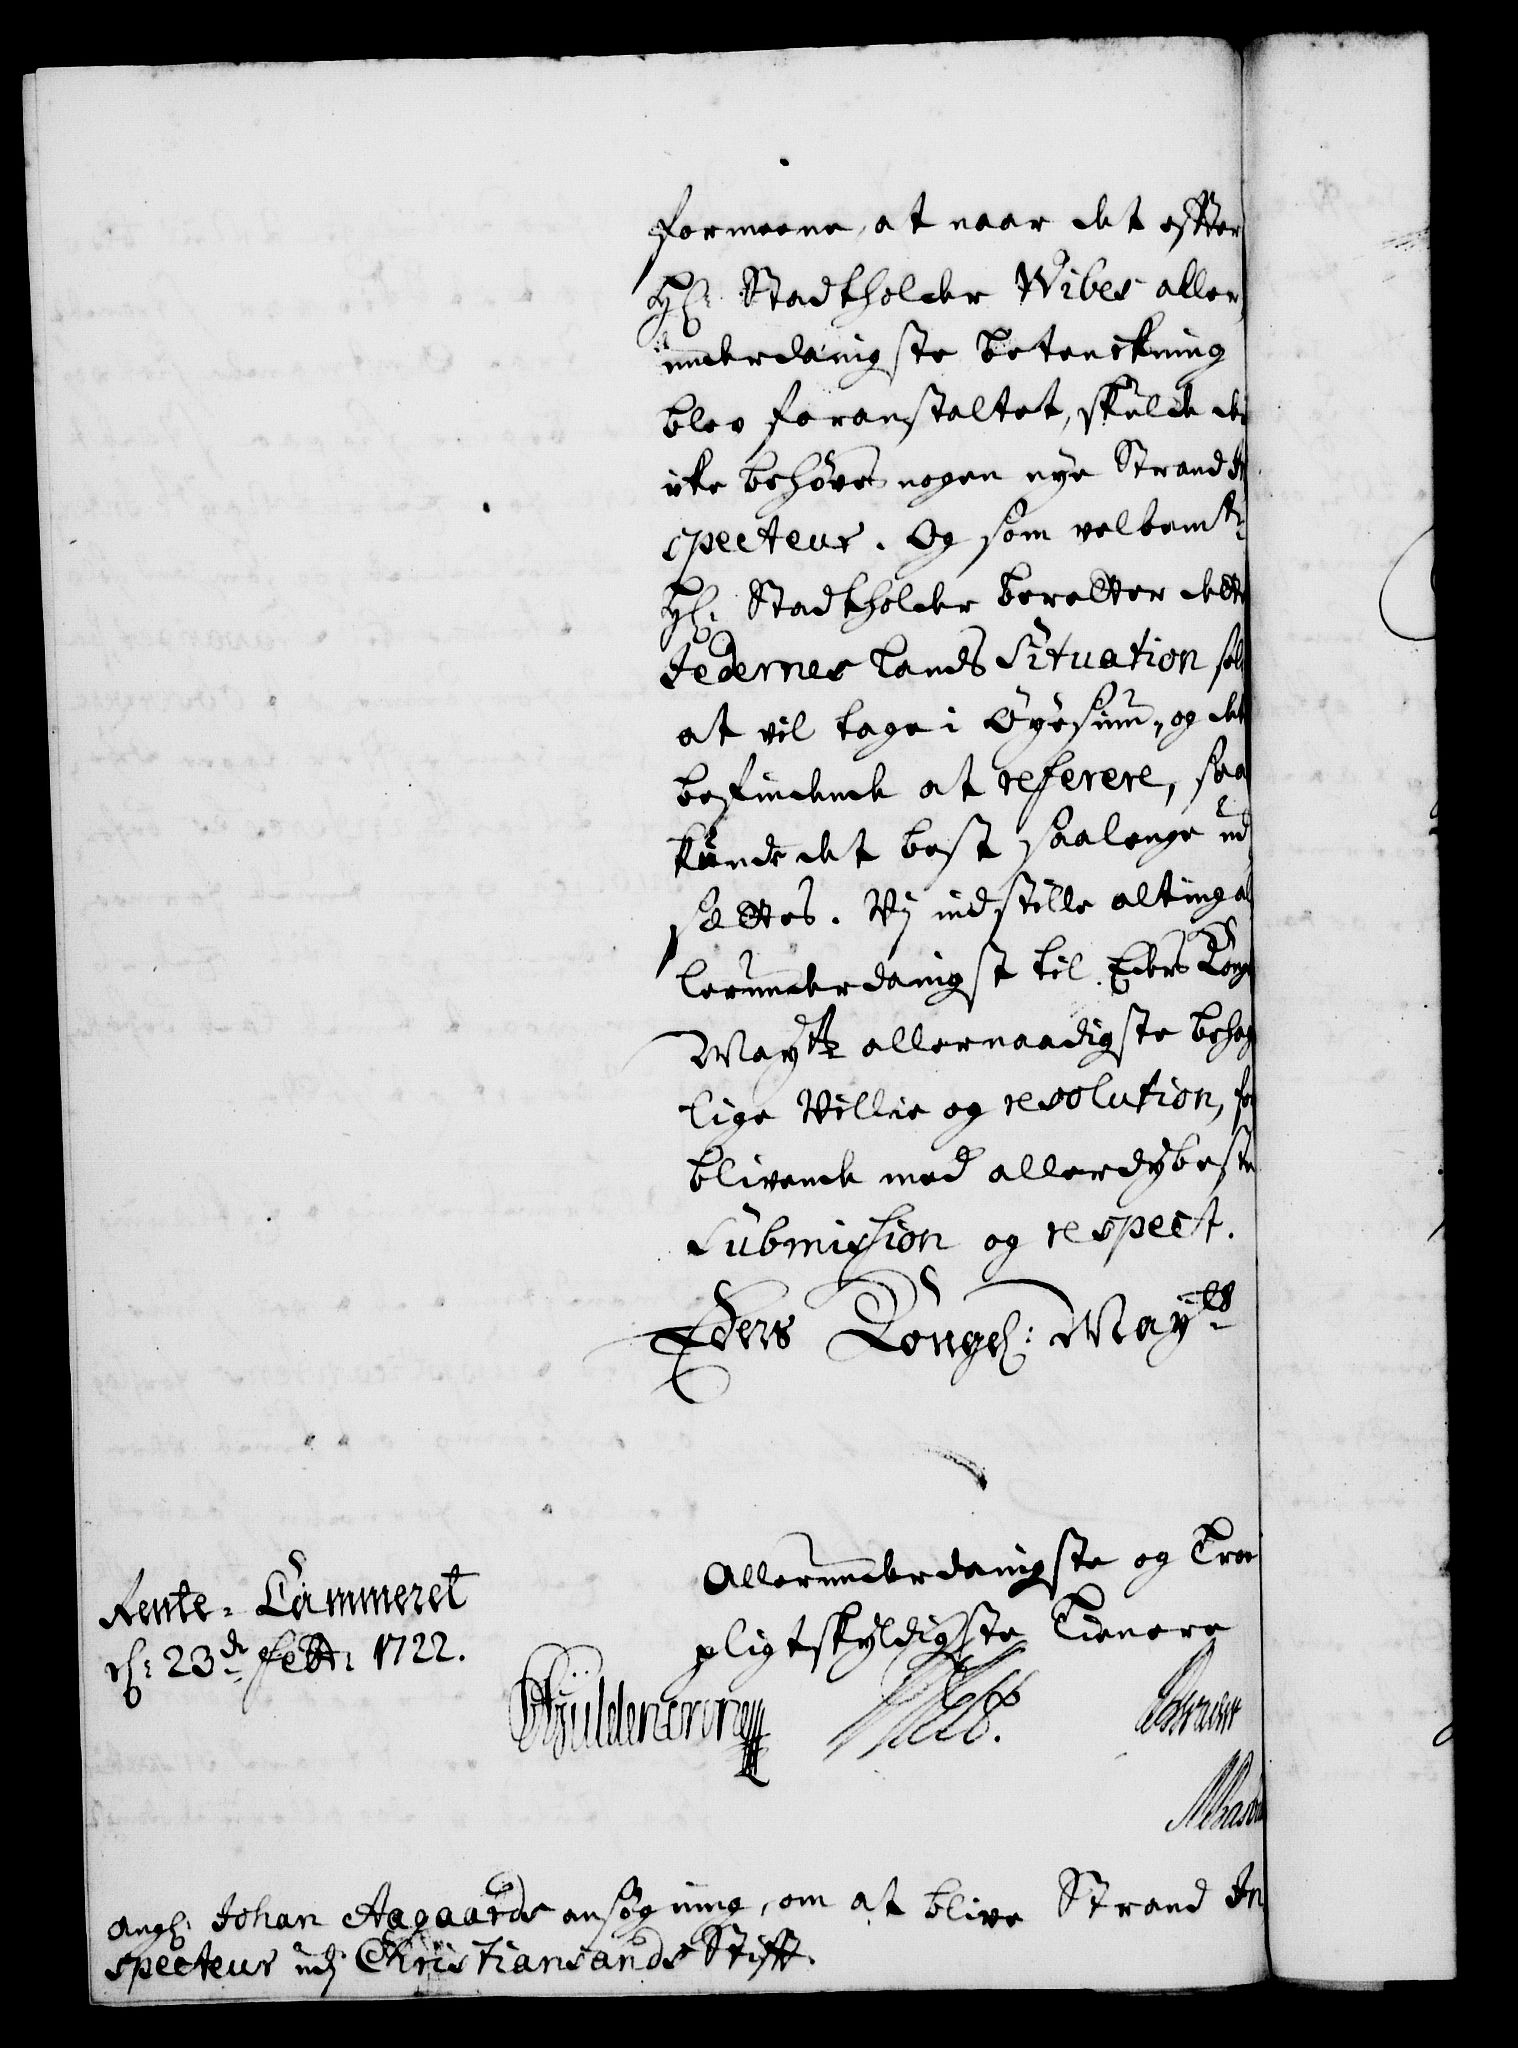 formeene, at naar det effter
Hr: Stadtholder Wibes aller,
underdanigste betenckning
blev foranstaltet, skulde der
icke behøves nogen nye Strand In
specteur. Og som velbemte
Hr: Stadtholder beretter dette
Jedernes Lands Situation self
at vil tage i Øyesiun, og det
befindende at referere, saa
kunde det best saalenge ud
settes. Vj indstille alting al
lerunderdanigst til Eders Kong
Maytts allernaadigste behage
lige Villie og resolution, for
blivende med allerdybeste
Submission og respect.
Eders Kongl: Maytts
Allerunderdanigste og Troe
pligtskyldigste Tienere
Rente-Cammeret
d: 23de Febr: 1722.
Gyldencrone
Angl: Johan Aagaards ansøgning, om at blive Strand In
specteur udj Christiansands Stifft.